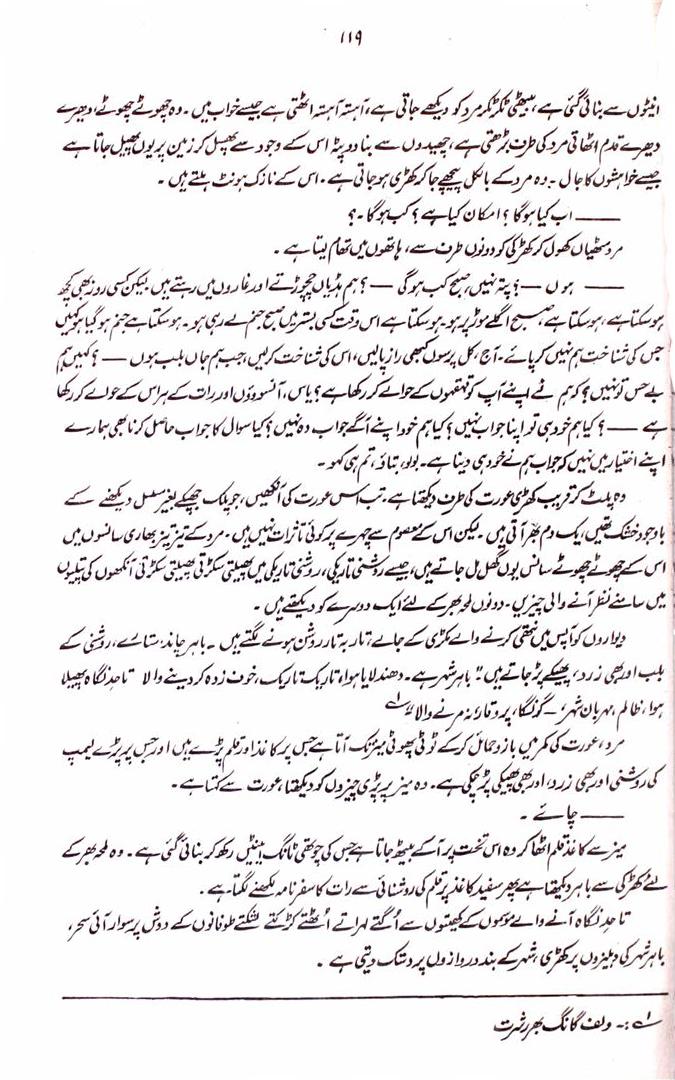 ۱۱۹
انیٹوں سے بنائی گئی ہے، بیٹھی ٹکر ٹکر مرد کو دیکھے جاتی ہے، آہستہ آہستہ اٹھتی ہے جیسے خواب میں ۔ وہ چھوٹے چھوٹے، دھیرے
دھیرے قدم اٹھاتی مرد کی طرف بڑھتی ہے، چھیدوں سے بنا دوپٹہ اس کے وجود سے پھسل کر زمین پر یوں پھیل جاتا ہے
جیسے خواہشوں کا جال ۔ وہ مرد کے بالکل پیچھے جا کر کھڑی ہو جاتی ہے ۔ اس کے نازک ہونٹ ہلتے ہیں ۔
—— اب کیا ہو گا ؟ امکان کیا ہے ؟ کب ہو گا ۔ ؟
مرد مٹھیاں کھول کر کھڑکی کو دونوں طرف سے، ہاتھوں میں تھام لیتا ہے ۔
—— ہوں — ؟ پتہ نہیں، صبح کب ہو گی — ؟ ہم ہڈیاں چچوڑتے اور غاروں میں رہتے ہیں لیکن کسی روز بھی کچھ
ہو سکتا ہے، ہو سکتا ہے، صبح اگلے موڑ پر ہو ۔ ہو سکتا ہے اس وقت کسی بستر میں صبح جنم لے رہی ہو ۔ ہو سکتا ہے جنم ہو گیا ہو کہیں
جس کی شناخت ہم نہیں کر پائے ۔ آج، کل، پرسوں کبھی راز پالیں، اس کی شناخت کر لیں، جب ہم جاں بلب ہوں — ؟ کہیں ہم
بے حس تو نہیں ؟ کہ ہم نے اپنے آپ کو قہقہوں کے حوالے کر رکھا ہے ؟ یاس، آنسوؤں اور رات کے ہراس کے حوالے کر رکھا
ہے — ؟ کیا ہم خود ہی تو اپنا جواب نہیں ؟ کیا ہم خود اپنے آگے جواب دہ نہیں ؟ کیا سوال کا جواب حاصل کرنا بھی ہمارے
اپنے اختیار میں نہیں کہ جواب ہم نے خود ہی دینا ہے ۔ بولو، بتاؤ، تم ہی کہو ۔
وہ پلٹ کر قریب کھڑی عورت کی طرف دیکھتا ہے ۔ تب اس عورت کی آنکھیں، جو پلک جھپکے بغیر مسلسل دیکھنے کے
باوجود خشک تھیں، یک دم بھر آتی ہیں ۔ لیکن اس کے معصوم سے چہرے پر کوئی تاثرات نہیں ہیں ۔ مرد کے تیز تیز بھاری سانسوں میں
اس کے چھوٹے چھوٹے سانس یوں گھل مل جاتے ہیں، جیسے روشنی تاریکی، روشنی تاریکی میں پھیلتی سکڑتی پھیلتی سکڑتی آنکھوں کی پتلیوں
میں سامنے نظر آنے والی چیزیں ۔ دونوں لمحہ بھر کے لئے ایک دوسرے کو دیکھتے ہیں ۔
دیواروں کو آپس میں نتھی کرنے والے مکڑی کے جالے، تار بہ تار روشن ہونے لگتے ہیں ۔ باہر چاند، ستارے، روشنی کے
بلب اور بھی زرد، پھیکے پڑ جاتے ہیں " باہر شہر ہے ۔ دھندلایا ہوا، تاریک تاریک، خوف زدہ کر دینے والا تا حدِ نگاہ پھیلا
ہوا، ظالم، مہربان شہر، – گونگا، پر وقار، نہ مرنے والا " ۱ے
مرد، عورت کی کمر میں بازو حمائل کر کے ٹوٹی پھوٹی میز تک آتا ہے جس پر کاغذ اور قلم پڑے ہیں اور جس پر پڑے لیمپ
کی روشنی اور بھی زرد، اور بھی پھیکی پڑ چکی ہے ۔ وہ میز پر پڑی چیزوں کو دیکھتا، عورت سے کہتا ہے ۔
—— چائے ۔
میز سے کاغذ قلم اٹھا کر وہ اس تخت پر آ کے بیٹھ جاتا ہے جس کی چوتھی ٹانگ اینٹیں رکھ کر بنائی گئی ہے ۔ وہ لمحہ بھر کے
لئے کھڑکی سے باہر دیکھتا ہے پھر سفید کاغذ پر قلم کی روشنائی سے رات کا سفر نامہ لکھنے لگتا ہے ۔
تا حدِ نگاہ آنے والے موسموں کے کھیتوں سے اُگتے لہراتے اُٹھتے کڑکتے لشکتے طوفانوں کے دوش پر سوار آئی سحر،
باہر شہر کی دہلیزوں پر کھڑی، شہر کے بند دروازوں پر دستک دیتی ہے ۔
۱ے :۔ ولف گانگ بھر رشرت